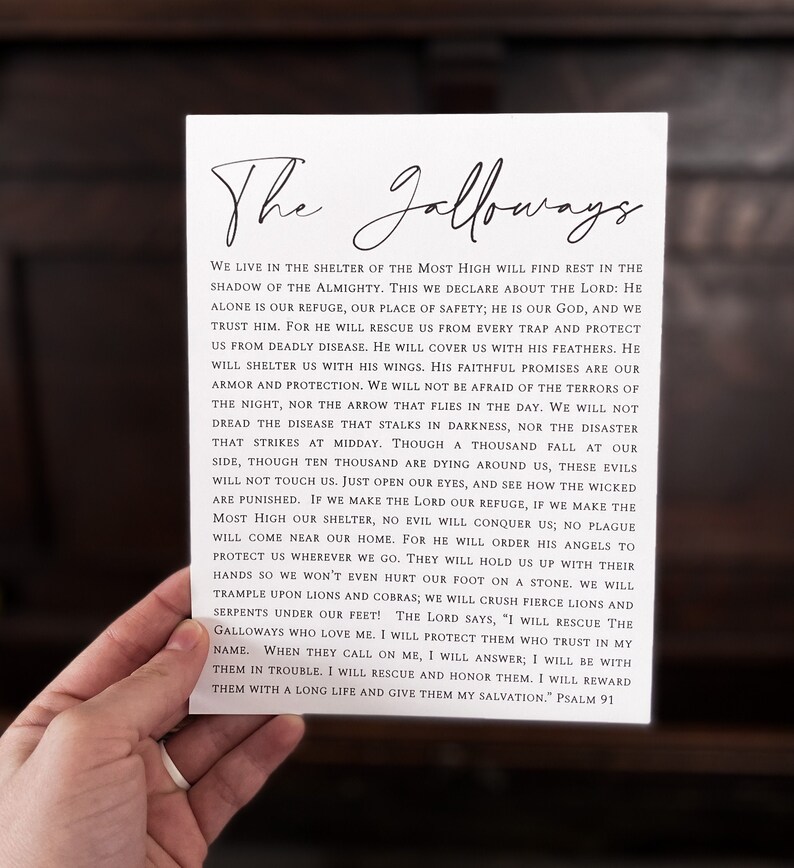 The Galloways
We live in the shelter of the Most High will find rest in the
shadow of the Almighty. This we declare about the Lord: He
alone is our refuge, our place of safety; he is our God, and we
trust him. For he will rescue us from every trap and protect
us from deadly disease. He will cover us with his feathers. He
will shelter us with his wings. His faithful promises are our
armor and protection. We will not be afraid of the terrors of
the night, nor the arrow that flies in the day. We will not
dread the disease that stalks in darkness, nor the disaster
that strikes at midday. Though a thousand fall at our
side, though ten thousand are dying around us, these evils
will not touch us. Just open our eyes, and see how the wicked
are punished. If we make the Lord our refuge, if we make the
Most High our shelter, no evil will conquer us; no plague
will come near our home. For he will order his angels to
protect us wherever we go. They will hold us up with their
hands so we won't even hurt our foot on a stone. we will
trample upon lions and cobras; we will crush fierce lions and
serpents under our feet! The Lord says, “I will rescue The
Galloways who love me. I will protect them who trust in my
name. When they call on me, I will answer; I will be with
them in trouble. I will rescue and honor them. I will reward
them with a long life and give them my salvation.” Psalm 91